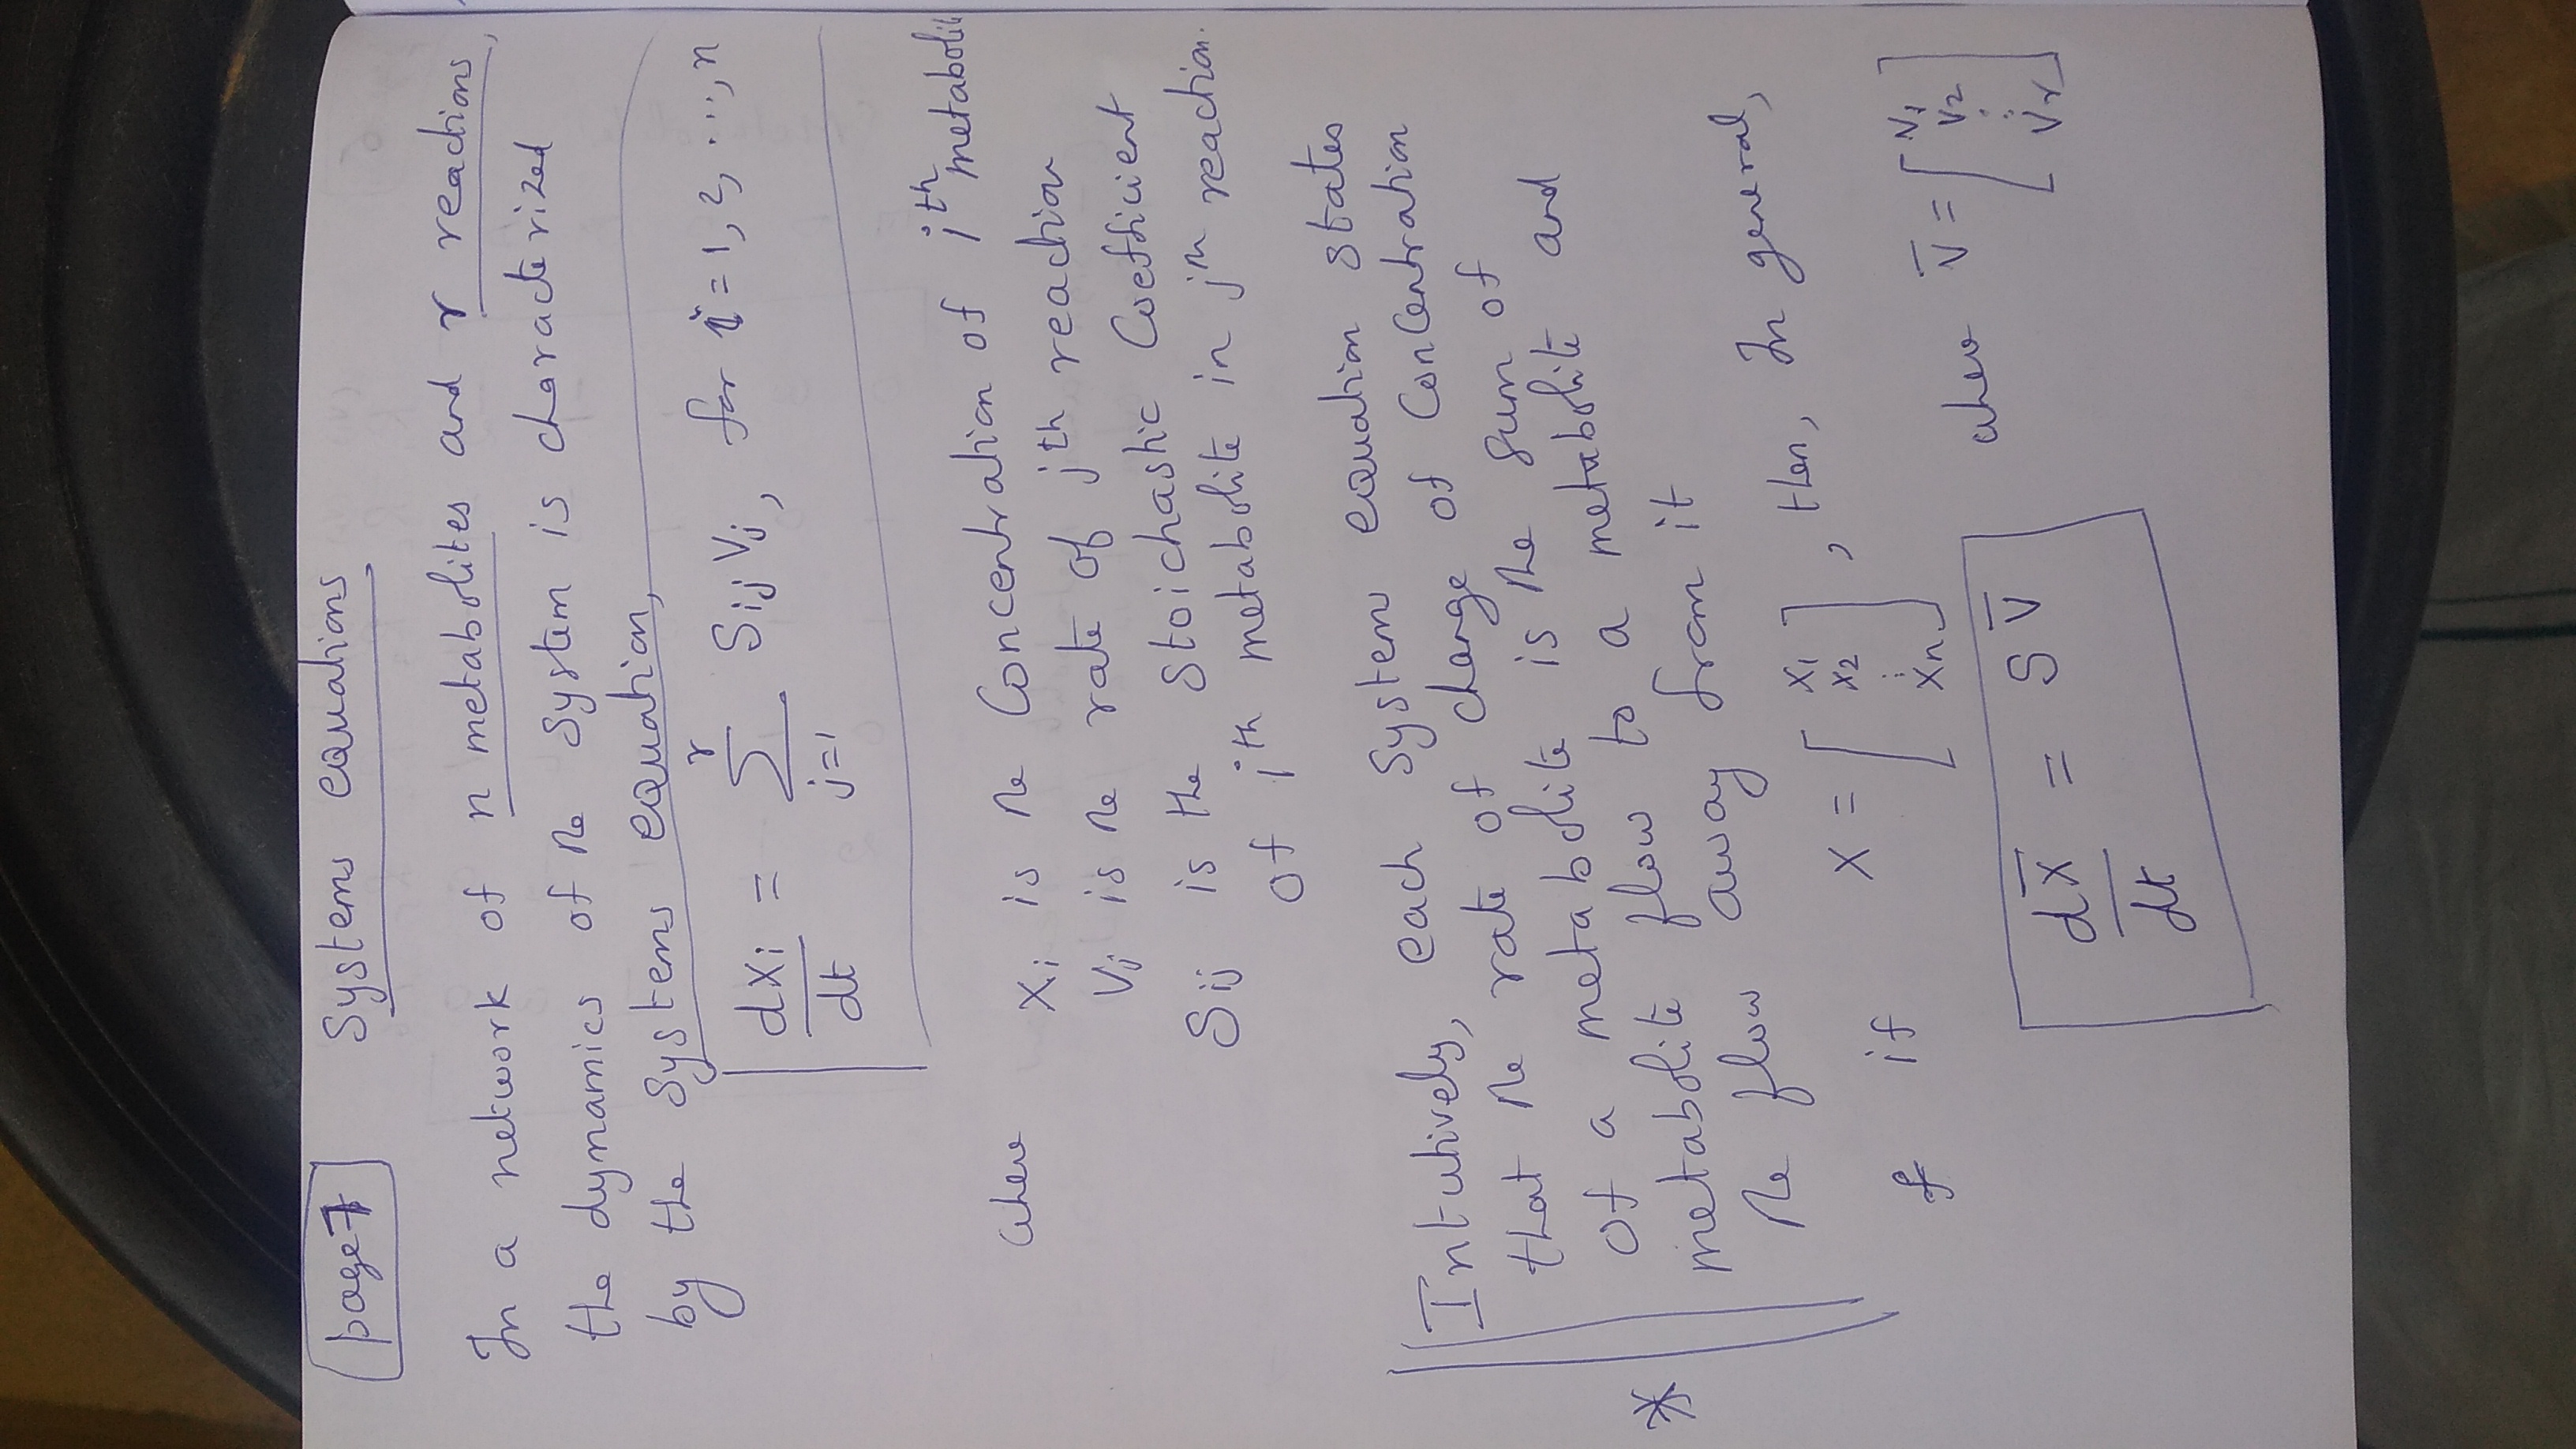 page 7 Systems equations
In a network of n metabolites and r reactions,
the dynamics of the system is characterized
by the Systems equation,
dxi/dt = Σ_{j=1}^{r} Sij Vj, for i = 1, 2, ..., n
where xi is the Concentration of ith metabolit
Vj is the rate of jth reaction
Sij is the Stoichastic Coefficient
of ith metabolite in jth reaction.
Intutively, each System equation states
that the rate of change of Concentration
* of a metabolite is the sum of
metabolite flow to a metabolite and
the flow away from it
if X = [x1 x2 ⋮ xn], then, In general,
dx̄/dt = S V̄ where V̄ = [V1 V2 ⋮ Vr]